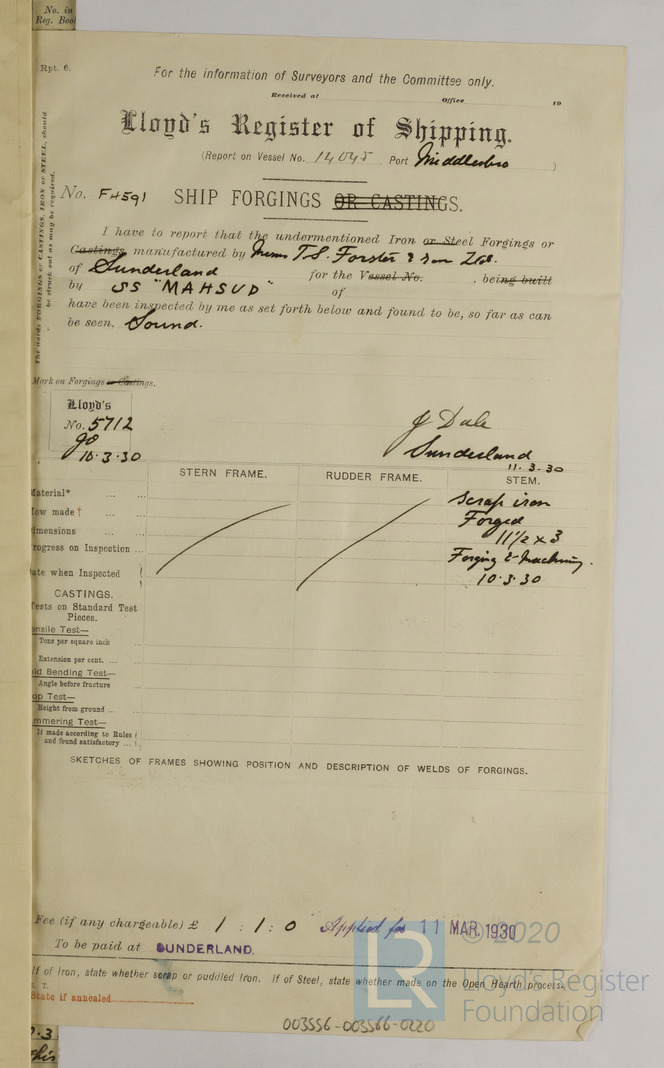 No. in
Reg. Book
Rpt. 6.
For the information of Surveyors and the Committee only.
Received at Office 19
Lloyd's Register of Shipping.
(Report on Vessel No. 14045 Port Middlesbro )
No. F4591 SHIP FORGINGS OR CASTINGS.
The words FORGINGS or CASTINGS, IRON or STEEL, should
be struck out as may be required.
I have to report that the undermentioned Iron or Steel Forgings or
Castings, manufactured by Messrs T.S. Forster & Son Ltd.
of Sunderland for the Vessel No. , being built
by SS "MAHSUD" of
have been inspected by me as set forth below and found to be, so far as can
be seen, Sound.
Mark on Forgings or Castings.
Lloyd's
No. 5712
10.3.30
J Dale
Sunderland
11.3.30
STERN FRAME. RUDDER FRAME. STEM.
Material* Scrap iron
How made† Forged
Dimensions 11½ x 3
Progress on Inspection Forging & Machining.
Date when Inspected 10.3.30
CASTINGS.
Tests on Standard Test
Pieces.
ensile Test—
Tons per square inch
Extension per cent.
ld Bending Test—
Angle before fracture
op Test—
Height from ground
mmering Test—
If made according to Rules
and found satisfactory
SKETCHES OF FRAMES SHOWING POSITION AND DESCRIPTION OF WELDS OF FORGINGS.
Fee (if any chargeable) £ 1 : 1 : 0 Applied for 11 MAR 1930
To be paid at SUNDERLAND.
If of Iron, state whether scrap or puddled Iron. If of Steel, state whether made on the Open Hearth process.
State if annealed
© 2020
LR
Lloyd's Register
Foundation
003556-003566-0220